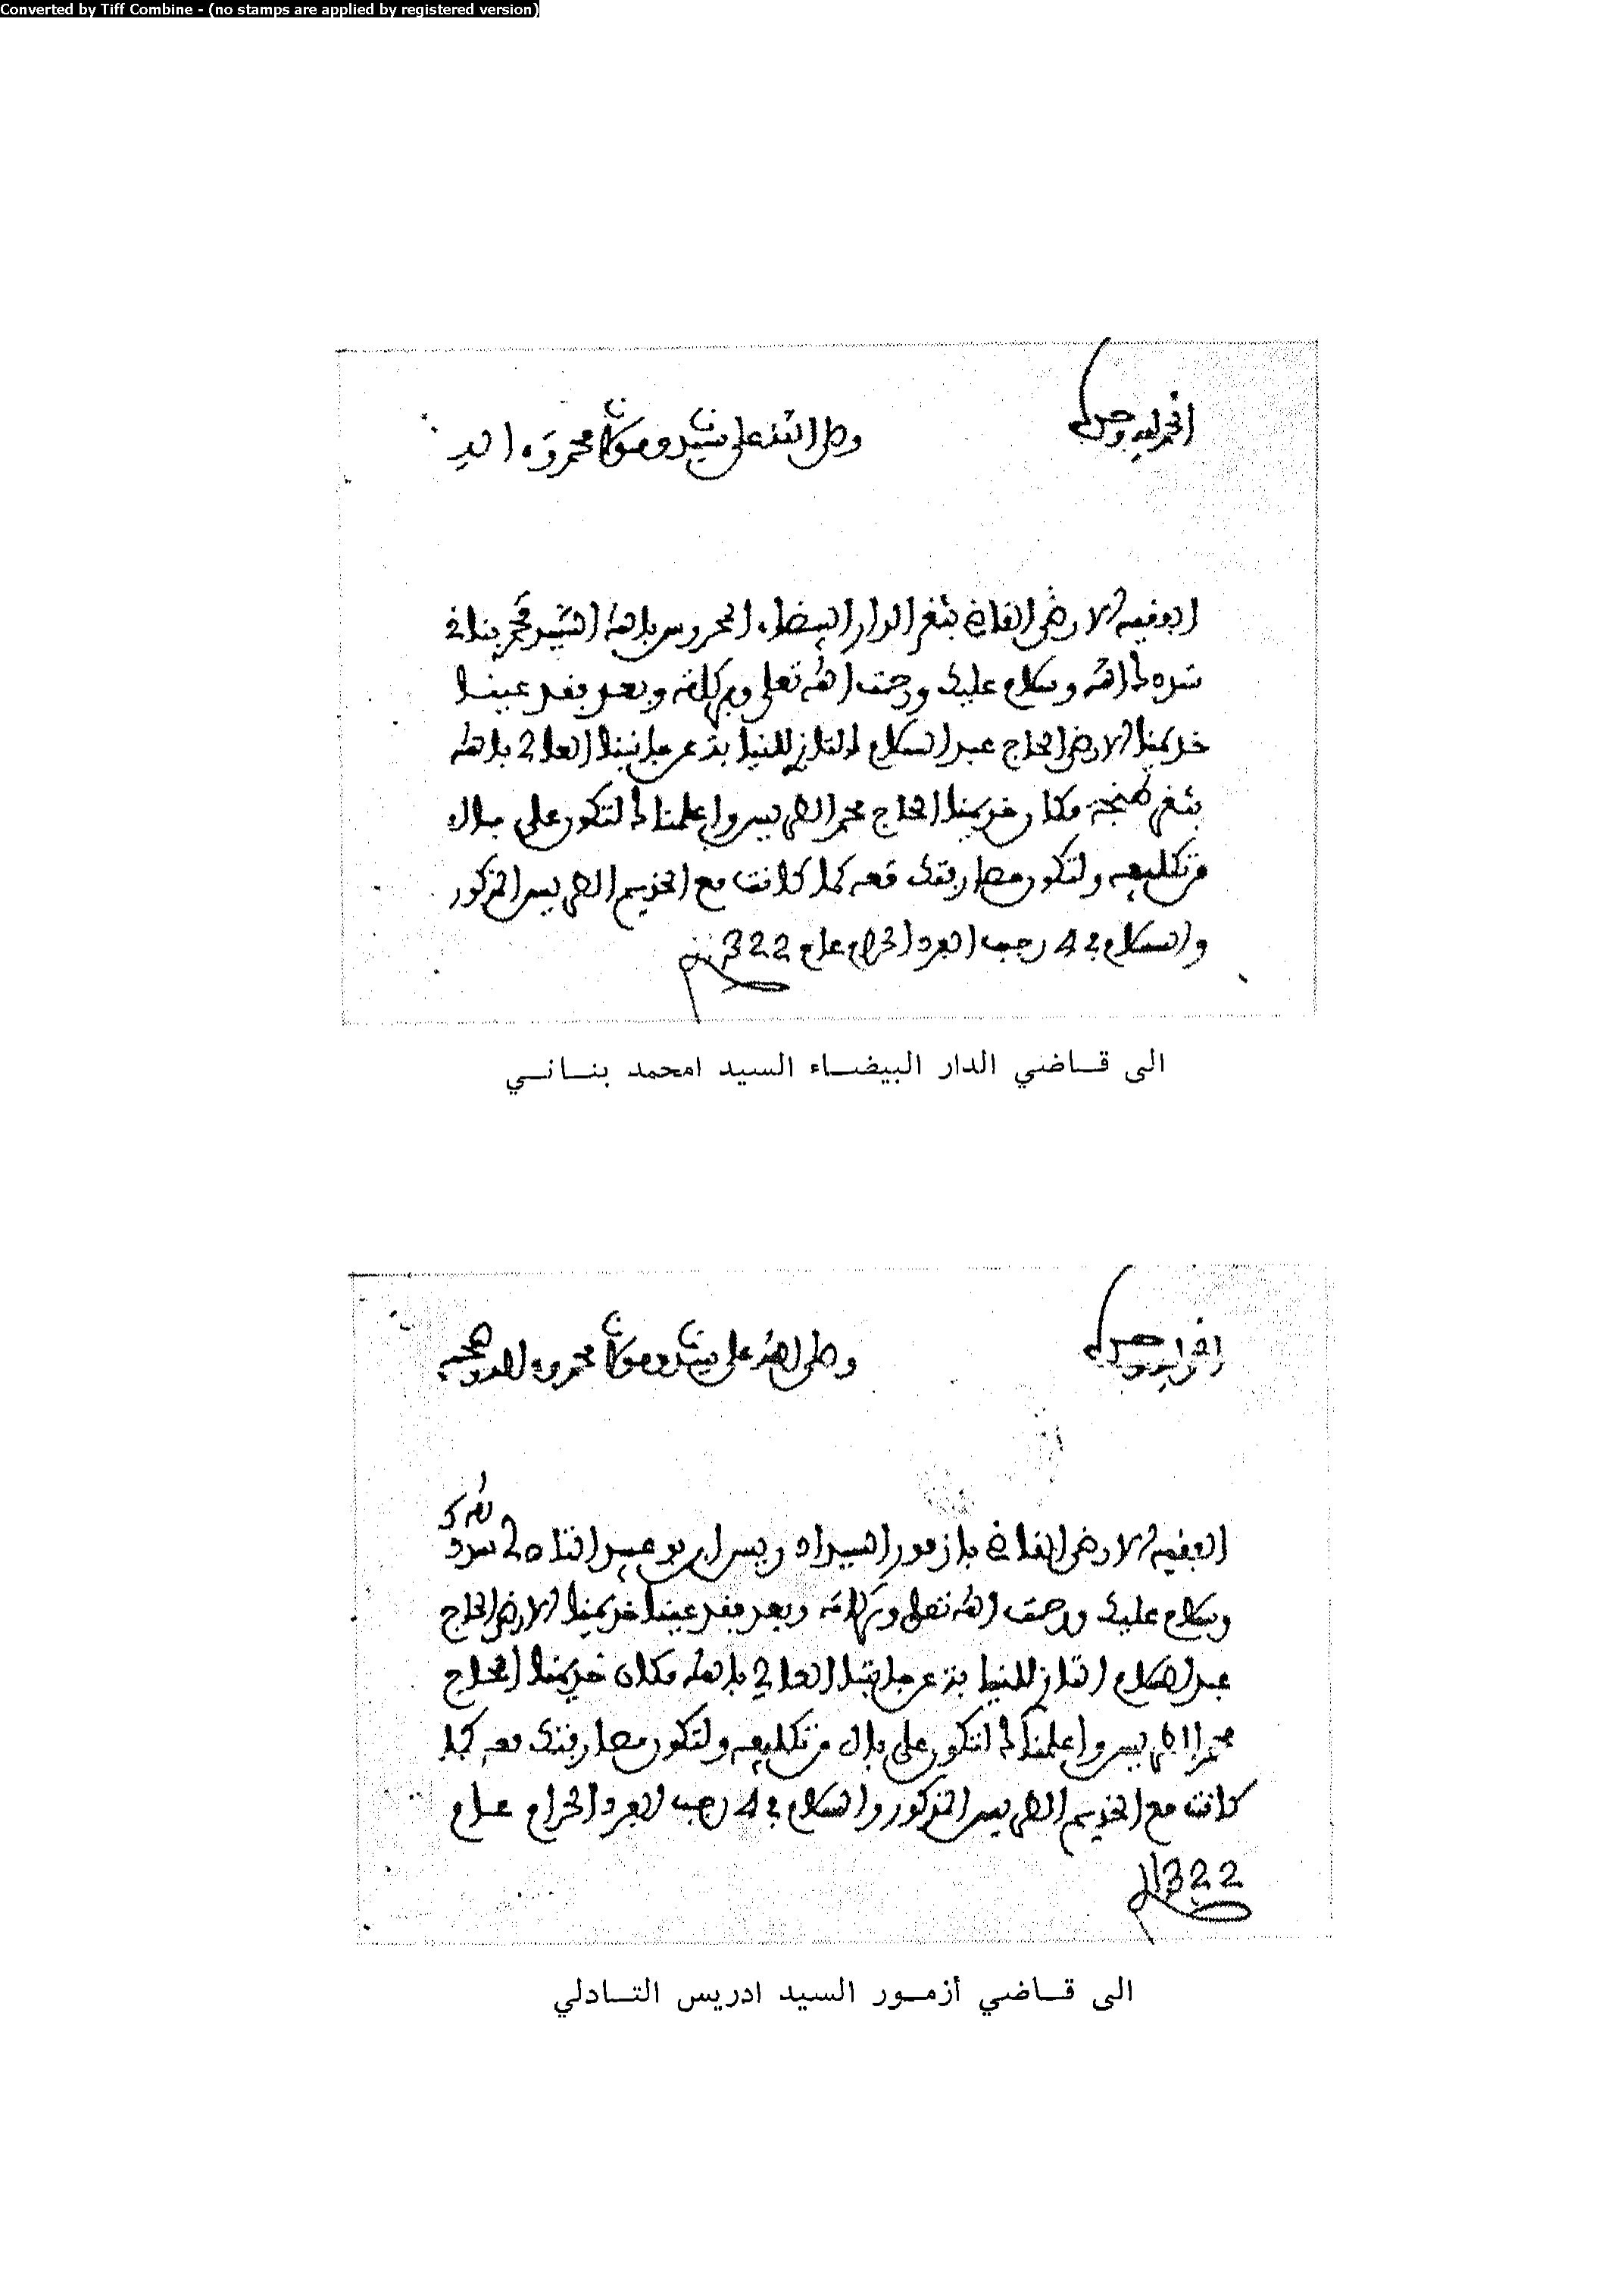 Converted by Tiff Combine - (no stamps are applied by registered version)
الحمد لله وحده
وصلى الله على سيدنا ومولانا محمد وءاله
الفقيه الارضى القاضي بثغر الدار البيضاء المحروس بالله السيد محمد بناني
سددك الله وسلام عليك ورحمت الله تعلى وبركاته وبعد فقد عينا
خديمنا الارضى الحاج عبد السلام التازي للنيابة عن جانبنا العالي بالله
بثغر طنجة مكان خديمنا الحاج محمد الطريس واعلمناك لتكون على بال
من تكليفه ولتكون مصارفتك معه كما كانت مع الخديم الطريس المذكور
والسلام في 4 رجب الفرد الحرام عام 1322
الى قاضي الدار البيضاء السيد امحمد بناني
الحمد لله وحده
وصلى الله على سيدنا ومولانا محمد وءاله وصحبه
الفقيه الارضى القاضي بازمور السيد ادريس بن بوعبيد التادلي سددك الله
وسلام عليك ورحمت الله تعلى وبركاته وبعد فقد عينا خديمنا الارضى الحاج
عبد السلام التازي للنيابة عن جانبنا العالي بالله مكان خديمنا الحاج
محمد الطريس واعلمناك لتكون على بال من تكليفه ولتكون مصارفتك معه كما
كانت مع الخديم الطريس المذكور والسلام في 4 رجب الفرد الحرام عام
1322
الى قاضي أزمور السيد ادريس التادلي